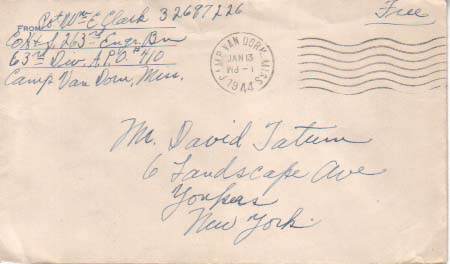 FROM Sgt Wm E Clark 32687226
Co H & S, 263rd Engr. Bn
63rd Div. A.P.O. #410
Camp Van Dorn, Miss.
Free
CAMP VAN DORN, MISS.
JAN 13
PM - 1
1944
Mr. David Tatum
6 Landscape Ave
Yonkers
New York.